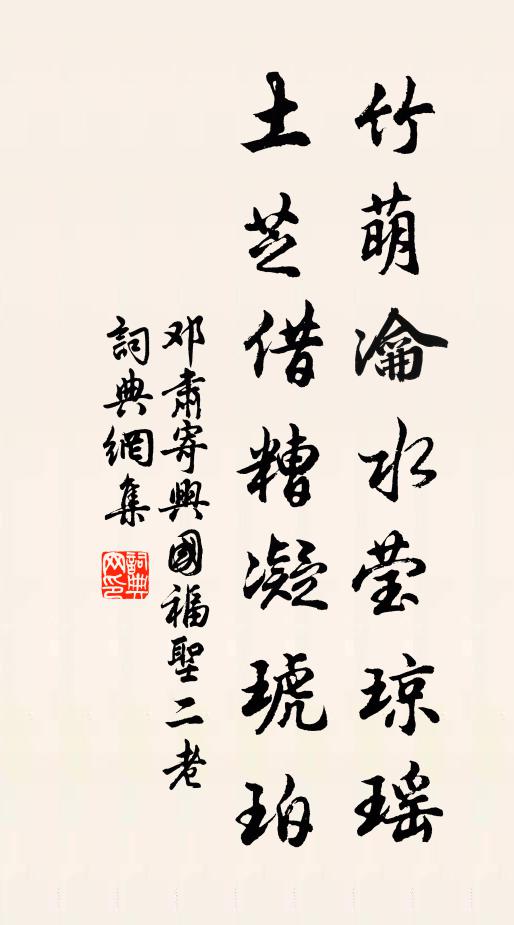 竹萌瀹水莹琼瑶
土芝借糟凝琥珀
邓肃寄興國福聖二老
詞典網集
詞典网印